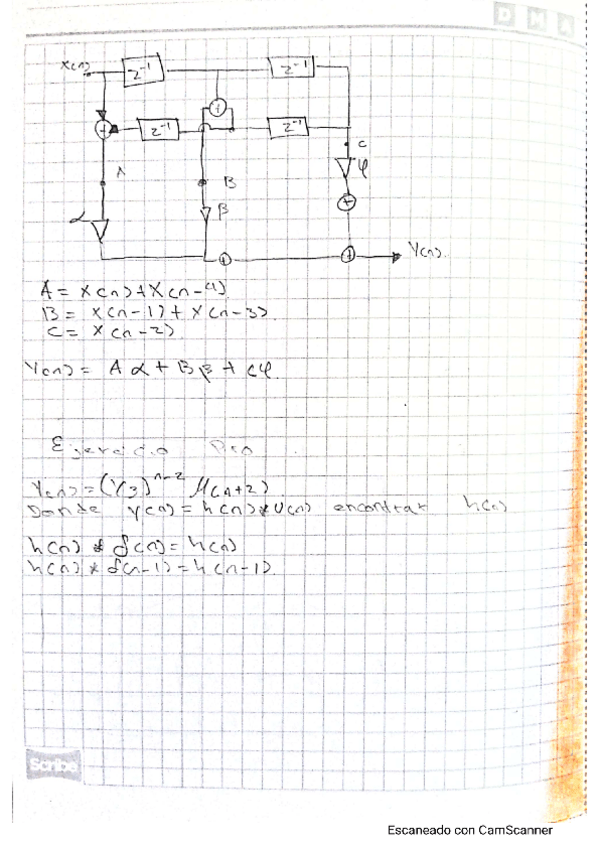 DMA
X(n)
z⁻¹
z⁻¹
+
+
z⁻¹
z⁻¹
C
A
B
φ
α
β
+
+
+
Y(n)
A = X(n) + X(n-4)
B = X(n-1) + X(n-3)
C = X(n-2)
Y(n) = A α + B β + C φ
Ejercicio Pro
Y(n) = (1/3)ⁿ⁻² μ(n+2)
Donde y(n) = h(n) * u(n) encontrar h(n)
h(n) * δ(n) = h(n)
h(n) * δ(n-1) = h(n-1)
Scribe
Escaneado con CamScanner